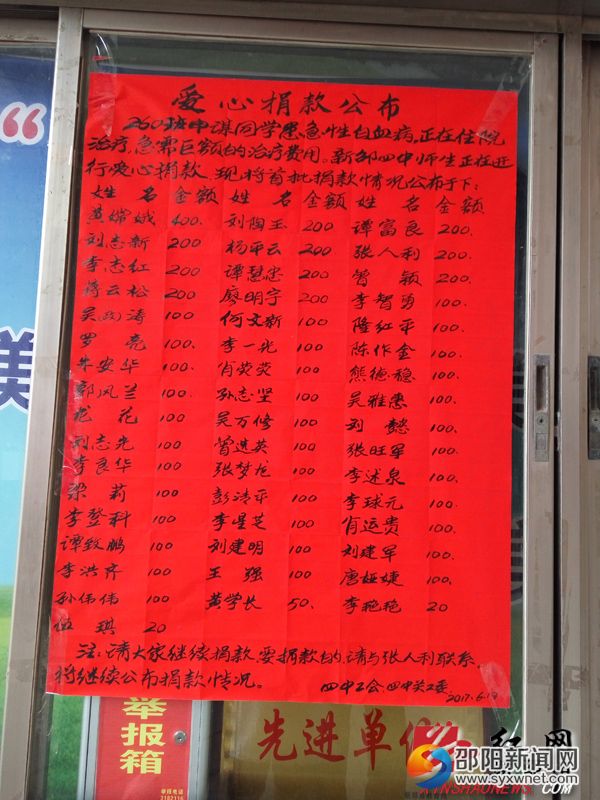 爱心捐款公布
260班申谋同学患急性白血病,正在住院
治疗,急需巨额的治疗费用。新邵四中师生正在进
行爱心捐款,现将首批捐款情况公布于下:
姓 名 金额 姓 名 金额 姓 名 金额
黄嫦娥 400. 刘陶玉 200 谭富良 200.
刘志新 200 杨平云 200 张人利 200.
李志红 200 谭慧忠 200 曾颖 200.
蒋云松 200 廖明宇 200 李智勇 100.
吴政涛 100 何文新 100 隆红平 100.
罗亮 100. 李一光 100 陈作金 100.
朱安华 100. 肖荧荧 100 熊德稳 100.
郭风兰 100. 孙志坚 100 吴雅惠 100.
龙花 100. 吴万修 100 刘懿 100.
刘志先 100 曾选英 100. 张旺军 100.
李良华 100. 张梦 100 李述泉 100.
梁莉 100 彭清平 100 李球元 100.
李登科 100 李星芝 100 肖运贵 100.
谭致鹏 100 刘建明 100 刘建军 100.
李洪齐 100 王强 100 唐娅婕 100.
孙伟伟 100 黄学长 50. 李艳艳 20
伍琪 20
注:请大家继续捐款,要捐款的,请与张人利联系,
将继续公布捐款情况。
四中工会.四中关工委
2017.6.19
举报箱
举报电话
2182116
先进单位
红网
邵阳新闻网
www.syxwnet.com